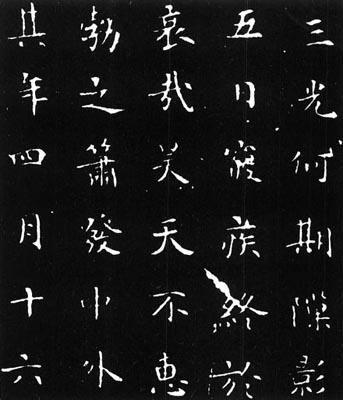 三光何期隙影
五日寢疾終於
哀哉昊天不惠
勃之簫發中外
其年四月十六